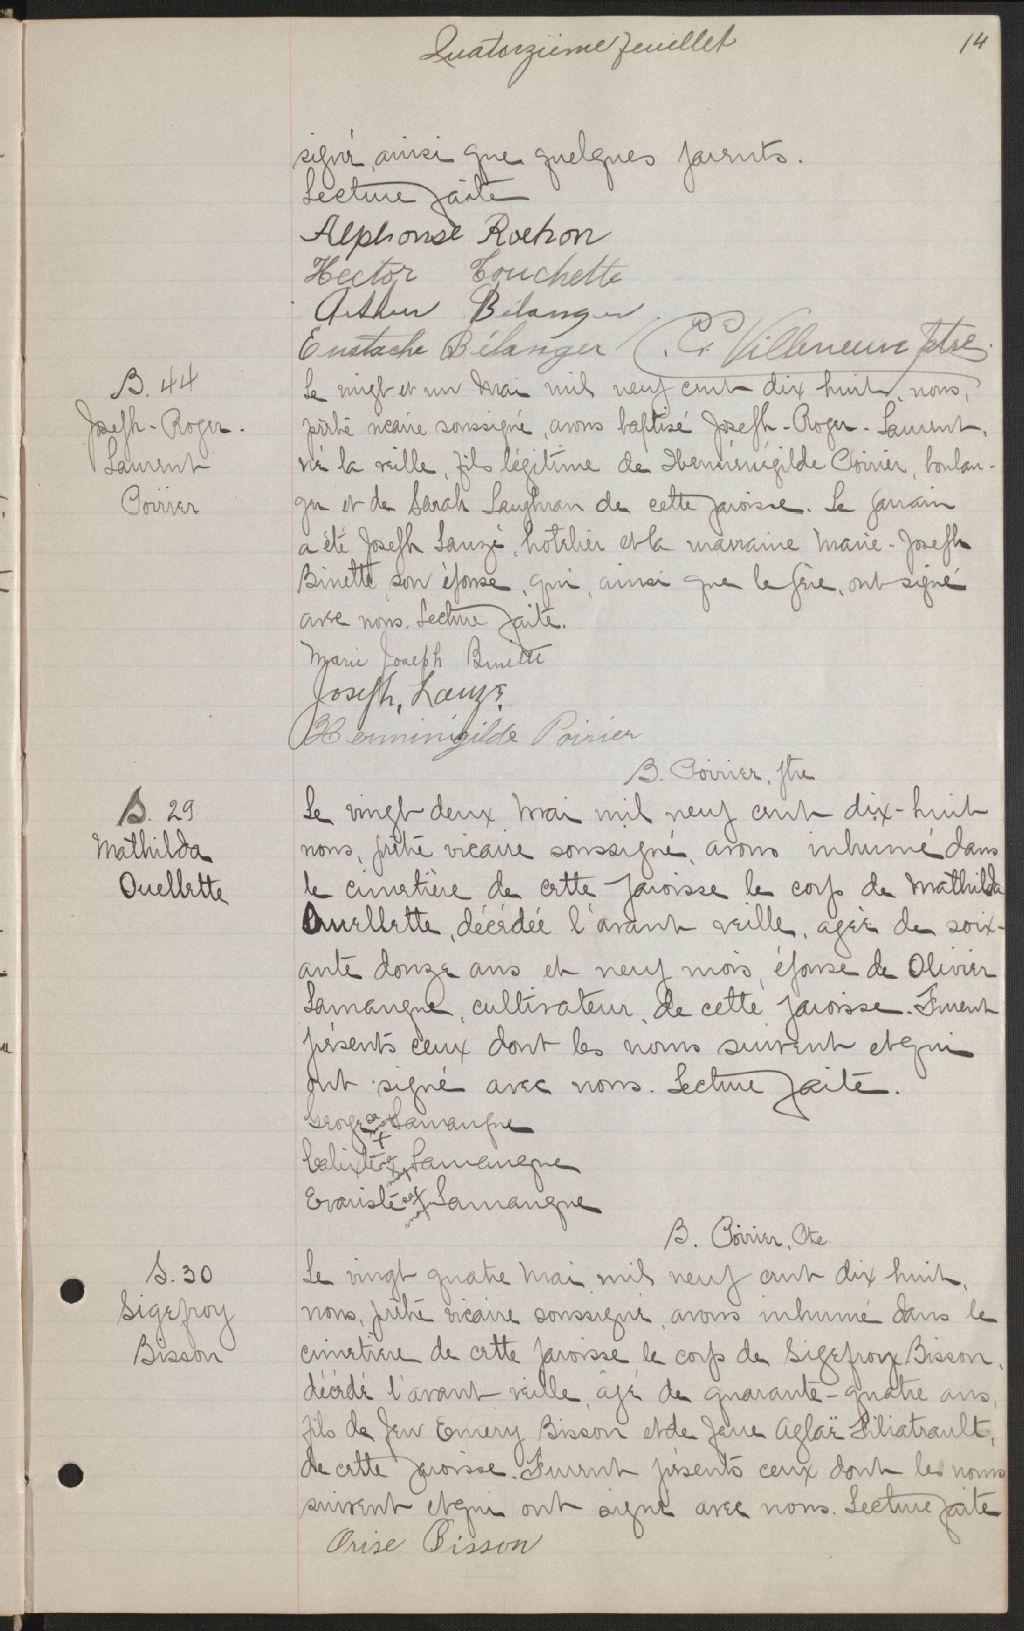 Quatorzième feuillet
14
signé, ainsi que quelques parents.
Lecture faite
Alphonse Rochon
Hector Touchette
Arthur Bélanger
Eustache Bélanger
Villeneuve Ptre.
B. 44
Joseph-Roger-
Laurent
Poirier
Le vingt et un Mai mil neuf cent dix huit, nous,
prêtre vicaire soussigné, avons baptisé Joseph-Roger-Laurent,
né la veille, fils légitime de Herménégilde Poirier, boulan-
ger et de Sarah Laughran de cette paroisse. Le parrain
a été Joseph Lauzé, hotelier et la marraine Marie-Joseph
Binette son épouse, qui, ainsi que le père, ont signé
avec nous. Lecture faite.
Marie Joseph Binette
Joseph, Lauzé,
Herminigilde Poirier
B. Poirier, ptre
S. 29
Mathilda
Ouellette
Le vingt deux Mai mil neuf cent dix-huit
nous, prêtre vicaire soussigné, avons inhumé dans
le cimetière de cette paroisse le corps de Mathilda
Ouellette, décédée l'avant veille, agée de soix-
ante douze ans et neuf mois, épouse de Olivier
Lamangue, cultivateur, de cette paroisse. Furent
présents ceux dont les noms suivent et qui
ont signé avec nous. Lecture faite.
George sa Lamangue
Calixte sa Lamangue
Evariste sa Lamangue
B. Poirier, Ptre
S. 30
Sigefroy
Bisson
Le vingt quatre Mai mil neuf cent dix huit,
nous, prêtre vicaire soussigné, avons inhumé dans le
cimetière de cette paroisse le corps de Sigefroy Bisson,
décédé l'avant veille, âgé de quarante-quatre ans,
fils de feu Emery Bisson et de feue Aglaë Filiatrault,
de cette paroisse. Furent présents ceux dont les noms
suivent et qui ont signé avec nous. Lecture faite
Orise Bisson